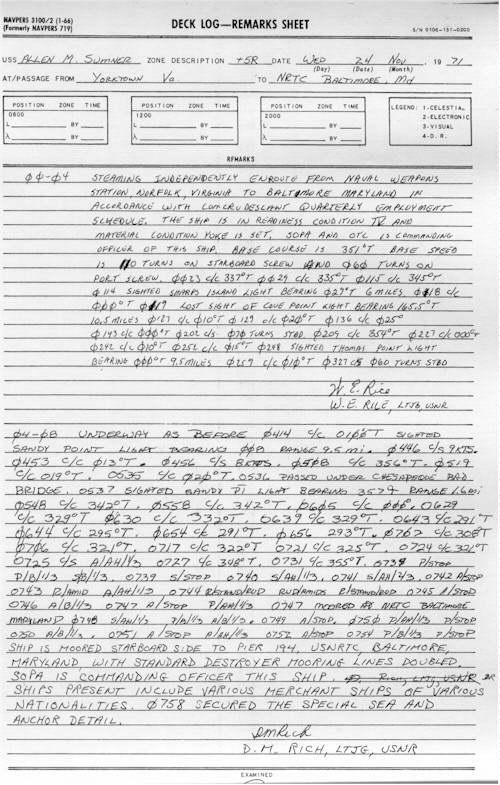 NAVPERS 3100/2 (1-66)
(Formerly NAVPERS 719)
DECK LOG—REMARKS SHEET
S/N 0106-131-0200
USS ALLEN M. SUMNER ZONE DESCRIPTION +5R DATE WED 24 NOV, 1971
(Day) (Date) (Month)
AT/PASSAGE FROM YORKTOWN Va TO NRTC BALTIMORE, Md
POSITION ZONE TIME
0800
L BY
λ BY
POSITION ZONE TIME
1200
L BY
λ BY
POSITION ZONE TIME
2000
L BY
λ BY
LEGEND: 1-CELESTIAL
2-ELECTRONIC
3-VISUAL
4-D.R.
REMARKS
ØØ-Ø4 STEAMING INDEPENDENTLY ENROUTE FROM NAVAL WEAPONS
STATION, NORFOLK, VIRGINIA TO BALTIMORE MARYLAND IN
ACCORDANCE WITH COMCRUDESLANT QUARTERLY EMPLOYMENT
SCHEDULE. THE SHIP IS IN READINESS CONDITION IV AND
MATERIAL CONDITION YOKE IS SET, SOPA AND OTC IS COMMANDING
OFFICER OF THIS SHIP. BASE COURSE IS 351°T BASE SPEED
IS 110 TURNS ON STARBOARD SCREW AND Ø6Ø TURNS ON
PORT SCREW. ØØ23 C/C 337°T ØØ29 C/C 335°T Ø115 C/C 345°T
Ø114 SIGHTED SHARPS ISLAND LIGHT BEARING Ø27°T 6 MILES. Ø118 C/C
ØØØ°T Ø119 LOST SIGHT OF COVE POINT LIGHT BEARING 165.5°T
10.5 MILES Ø127 C/C Ø1Ø°T Ø129 C/C Ø2Ø°T Ø136 C/C Ø25°
Ø143 C/C ØØØ°T Ø202 C/S Ø7Ø TURNS STBD. Ø209 C/C 354°T Ø227 C/C 000°T
Ø242 C/C Ø1Ø°T Ø252 C/C Ø15°T Ø248 SIGHTED THOMAS POINT LIGHT
BEARING ØØØ°T 9.5 MILES Ø259 C/C Ø1Ø°T Ø327 C/S Ø6Ø TURNS STBD
W. E. Rice
W. E. RICE, LTJG, USNR
Ø4-Ø8 UNDERWAY AS BEFORE Ø414 C/C 010°T SIGHTED
SANDY POINT LIGHT BEARING ØØ8 RANGE 9.5 mi. Ø446 C/S 9 KTS.
Ø453 C/C Ø13°T. Ø456 C/S 8 KTS. Ø508 C/C 356°T. Ø519
C/C 019°T. 0535 C/C Ø2Ø°T. 0536 PASSED UNDER CHESAPEAKE BAY
BRIDGE. 0537 SIGHTED SANDY PT LIGHT BEARING 357° RANGE 1.6 mi
Ø548 C/C 342°T. Ø558 C/C 342°T. Ø605 C/C ØØØ. 0629
C/C 329°T Ø630 C/C 332°T 0639 C/C 329°T. 0643 C/C 291°T
Ø644 C/C 295°T. Ø654 C/C 291°T. Ø656 293°T. Ø702 C/C 308°T
Ø706 C/C 321°T. 0717 C/C 322°T 0721 C/C 325°T. 0724 C/C 321°T
0725 C/S A/AH/1/3 0727 C/C 348°T. 0731 C/C 355°T. 0738 P/STOP
P/B/1/3 S/B/1/3. 0739 S/STOP 0740 S/AH/1/3, 0741 S/AH/1/3. 0742 A/STOP
0743 R/AMID A/AH/1/3 0744 0745 A/STOP
0746 A/B/1/3 0747 A/STOP P/AH/1/3 0747 MOORED AT NRTC BALTIMORE
MARYLAND Ø748 S/AH/1/3 P/B/1/3 A/B/1/3. 0749 A/STOP. Ø75Ø P/AH/1/3 P/STOP
0750 A/B/1/3. 0751 A/STOP P/AH/1/3 0752 A/STOP 0754 P/B/1/3 P/STOP
SHIP IS MOORED STARBOARD SIDE TO PIER 194, USNRTC, BALTIMORE,
MARYLAND, WITH STANDARD DESTROYER MOORING LINES DOUBLED.
SOPA IS COMMANDING OFFICER THIS SHIP.
SHIPS PRESENT INCLUDE VARIOUS MERCHANT SHIPS OF VARIOUS
NATIONALITIES. Ø758 SECURED THE SPECIAL SEA AND
ANCHOR DETAIL.
DM Rich
D. M. RICH, LTJG, USNR
EXAMINED